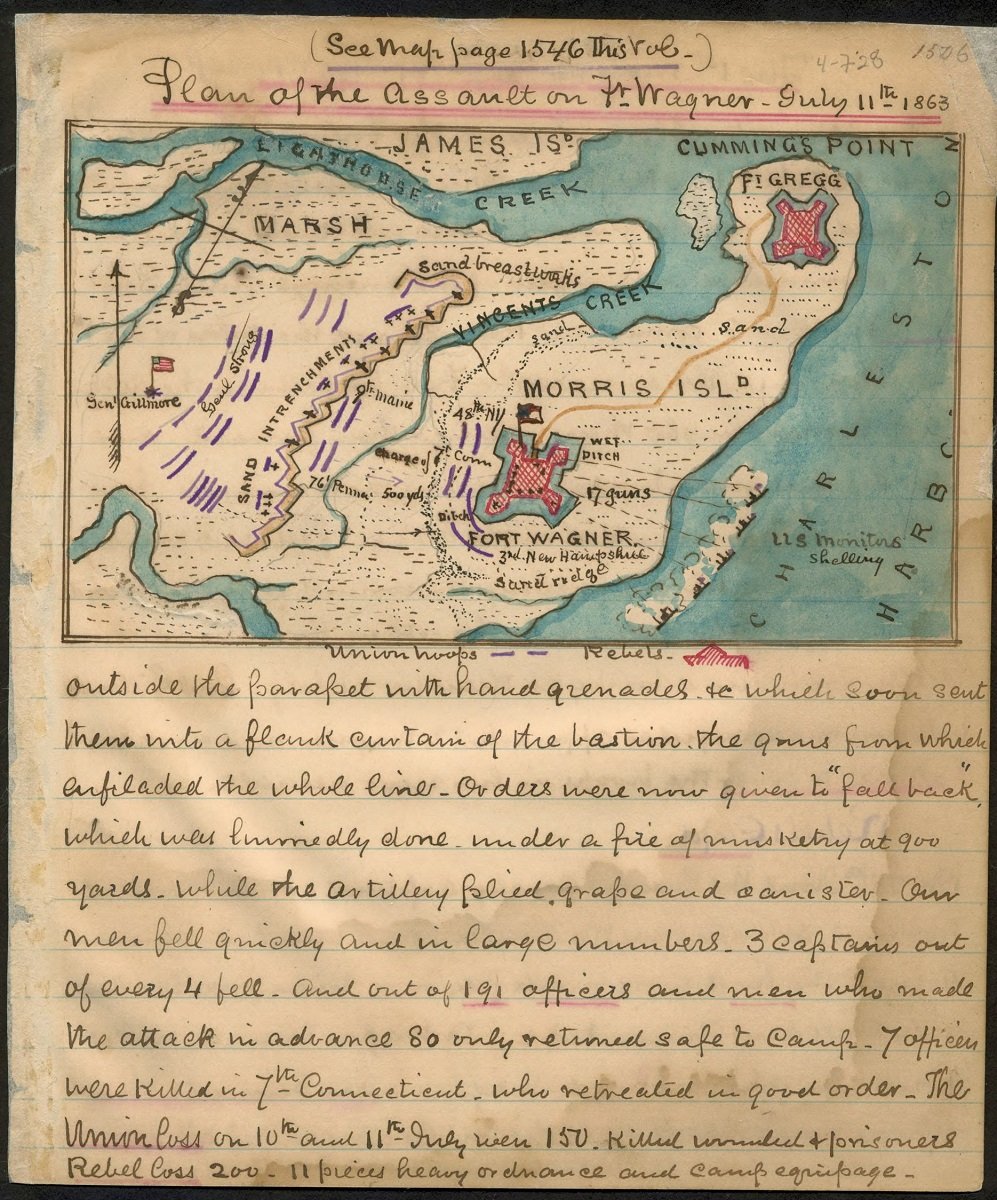 (See Map page 1546 This Vol-)
4-7-28
1506
Plan of the Assault on Ft Wagner - July 11th 1863
JAMES ISD
CUMMINGS POINT
LIGHTHOUSE CREEK
FT GREGG
MARSH
Sand breastworks
VINCENTS CREEK
sand
sand
Genl Gillmore
Genl Strong
SAND INTRENCHMENTS
9th Maine
MORRIS ISLD
48th NY
WET DITCH
charge of 7th Conn
76th Penna
500 yds
17 guns
Ditch
FORT WAGNER
3rd New Hampshire
Sand ridge
U S Monitors
Shelling
CHARLESTON
HARBOR
Union troops - - Rebels-
outside the parapet with hand grenades. &c which soon sent
them into a flank curtain of the bastion. the guns from which
enfiladed the whole line - Orders were now given to "fall back",
which was hurriedly done. under a fire of musketry at 900
yards. while the artillery plied. grape and canister - Our
men fell quickly and in large numbers - 3 captains out
of every 4 fell - And out of 191 officers and men who made
the attack in advance 80 only returned safe to Camp - 7 officers
were Killed in 7th Connecticut. who retreated in good order - The
Union loss on 10th and 11th July were 150. Killed wounded & prisoners
Rebel loss 200 - 11 pieces heavy ordnance and camp equipage -